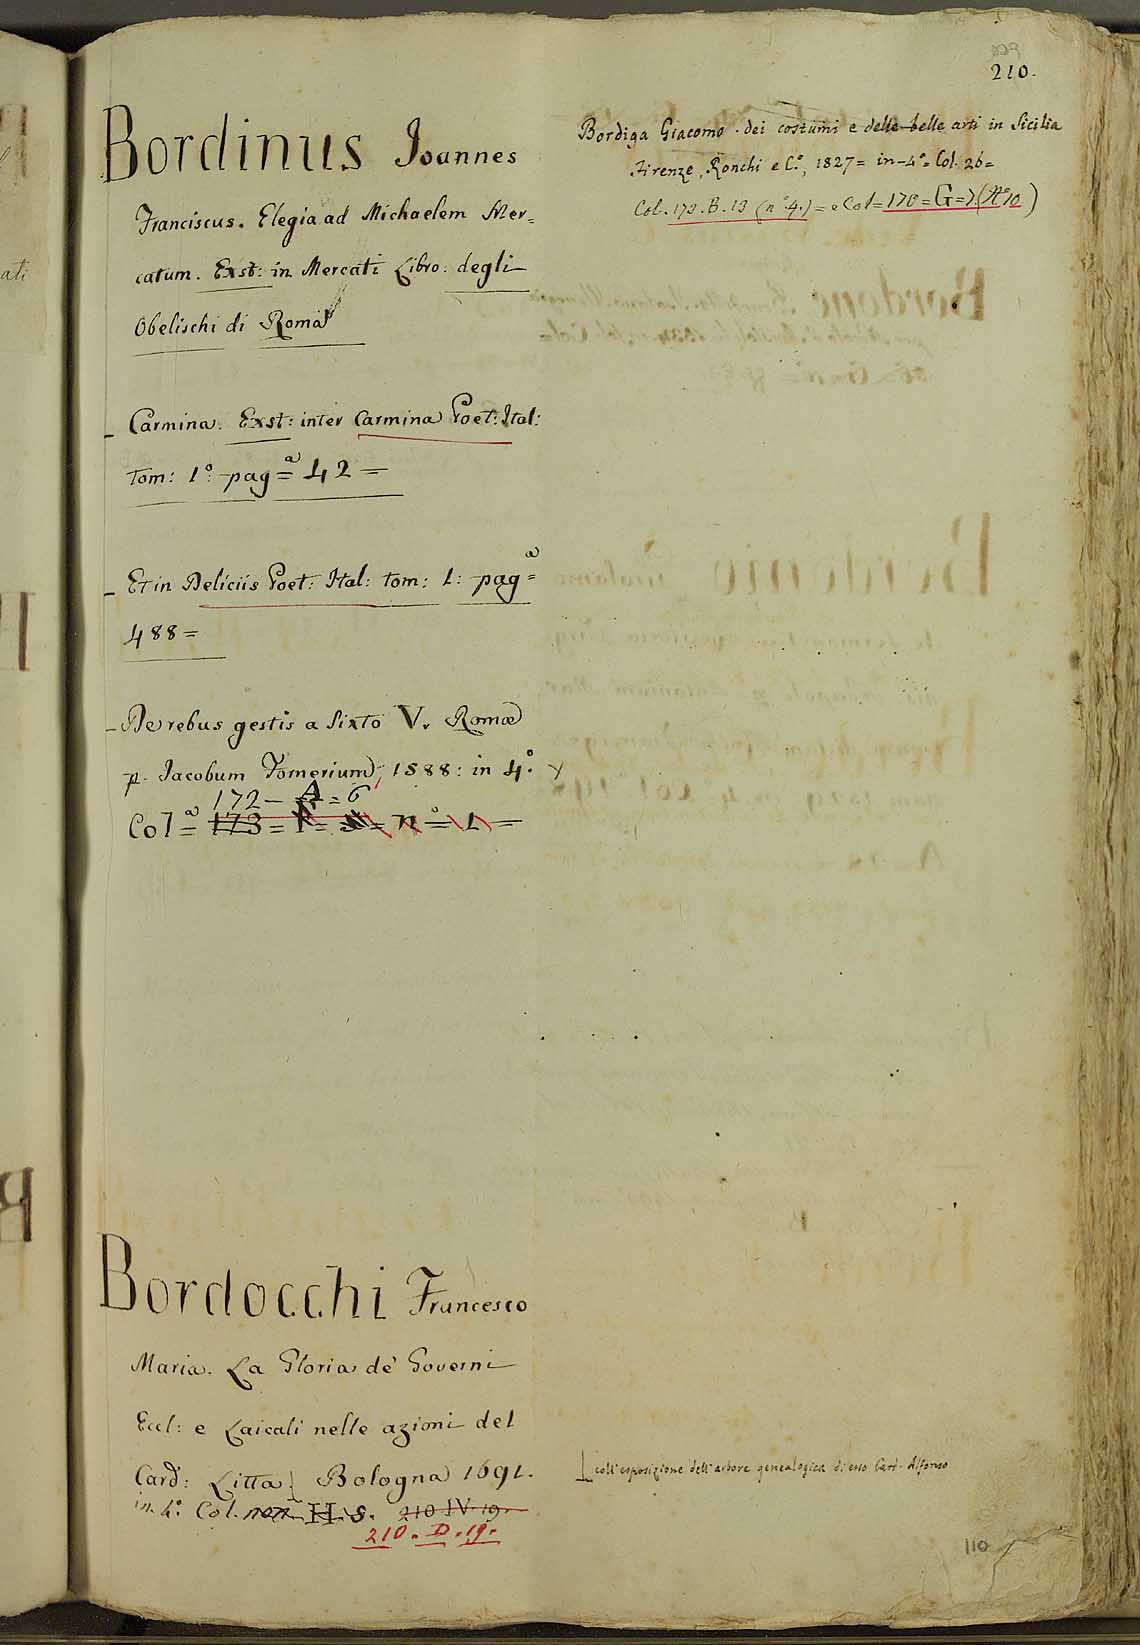 210.
Bordinus Joannes
Franciscus. Elegia ad Michaelem Mer=
catum. Exst: in Mercati Libro: degli
Obelischi di Roma
- Carmina. Exst: inter Carmina Poet: Ital:
tom: 1.º pag.ª = 42 =
- Et in Deliciis Poet: Ital: tom: 1: pag.ª =
488 =
- De rebus gestis a Sixto V. Romæ
p. Jacobum Tornerium, 1588: in 4.º
172 - A = 6
Col.ª = 173 = = n.º = 1 =
Bordocchi Francesco
Maria. La Gloria de' Governi
Eccl: e Laicali nelle azioni del
Card: Litta Bologna 1691.
in 4.º Col. H. S. 210 IV 19.
210. D. 19.
Bordiga Giacomo. dei costumi e delle belle arti in Sicilia
Firenze, Ronchi e C.º, 1827 = in-4.º = Col. 26 =
Col. 173. B. 13 (n.º 4.) = e Col = 170 = G = 7 (Nº 10)
coll'esposizione dell'arbore genealogica di esso Card. Alfonso
110